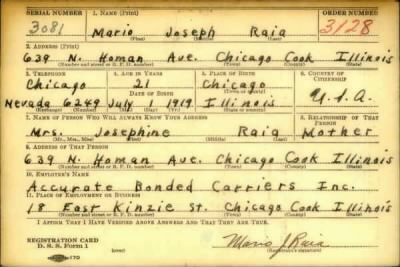 SERIAL NUMBER 1. NAME (Print) ORDER NUMBER
3081 Mario Joseph Raia 3128
(First) (Middle) (Last)
2. ADDRESS (Print)
639 N. Homan Ave. Chicago Cook Illinois
(Number and street or R. F. D. number) (Town) (County) (State)
3. TELEPHONE 4. AGE IN YEARS 5. PLACE OF BIRTH 6. COUNTRY OF CITIZENSHIP
Chicago 21 Chicago
DATE OF BIRTH (Town or county)
Nevada 6249 July 1 1919 Illinois U.S.A.
(Exchange) (Number) (Mo.) (Day) (Yr.) (State or country)
7. NAME OF PERSON WHO WILL ALWAYS KNOW YOUR ADDRESS 8. RELATIONSHIP OF THAT PERSON
Mrs. Josephine Raia Mother
(Mr., Mrs., Miss) (First) (Middle) (Last)
9. ADDRESS OF THAT PERSON
639 N. Homan Ave. Chicago Cook Illinois
(Number and street or R. F. D. number) (Town) (County) (State)
10. EMPLOYER'S NAME
Accurate Bonded Carriers Inc.
11. PLACE OF EMPLOYMENT OR BUSINESS
18 East Kinzie St. Chicago Cook Illinois
(Number and street or R. F. D. number) (Town) (County) (State)
I AFFIRM THAT I HAVE VERIFIED ABOVE ANSWERS AND THAT THEY ARE TRUE.
REGISTRATION CARD
D. S. S. Form 1
Mario J Raia
(Registrant's signature)